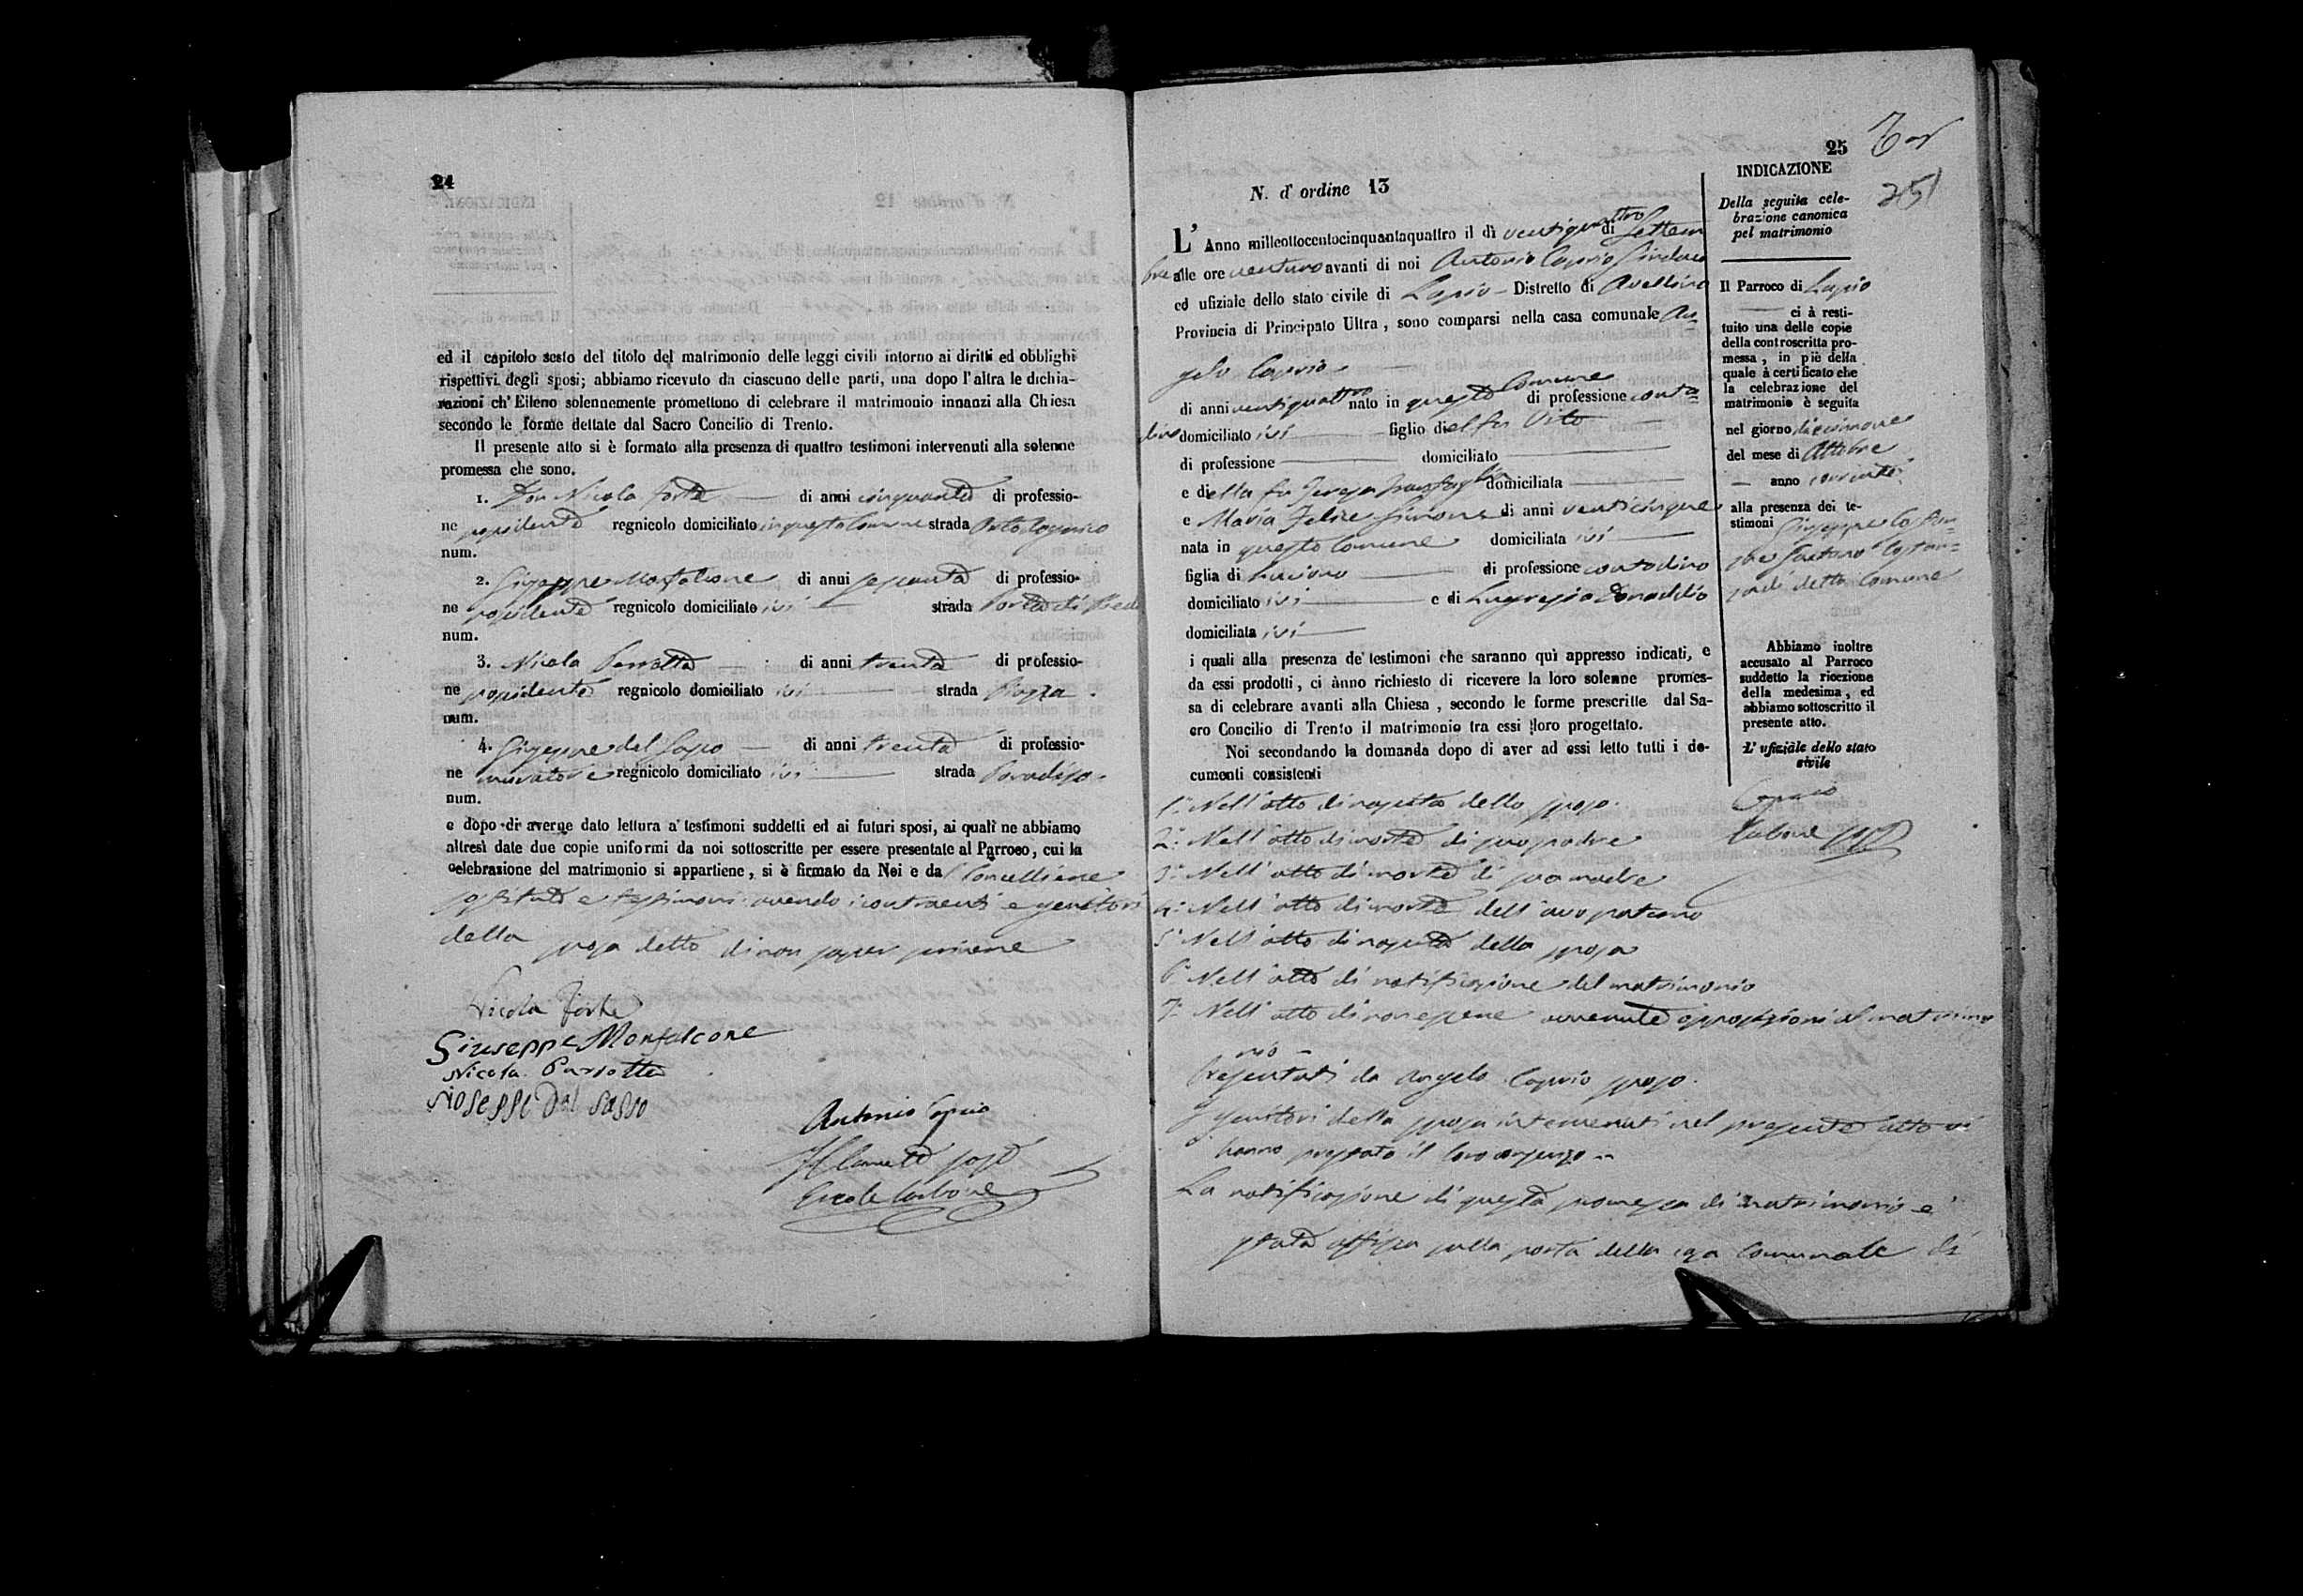 24
ed il capitolo sesto del titolo del matrimonio delle leggi civili intorno ai diritti ed obblighi
rispettivi degli sposi; abbiamo ricevuto da ciascuno delle parti, una dopo l'altra le dichia-
razioni ch' Elleno solennemente promettono di celebrare il matrimonio innanzi alla Chiesa
secondo le forme dettate dal Sacro Concilio di Trento.
Il presente atto si è formato alla presenza di quattro testimoni intervenuti alla solenne
promessa che sono.
1. Don Nicola Forte di anni cinquanta di professio-
ne possidente regnicolo domiciliato in questo Comune strada
num.
2. Giuseppe Monfalcone di anni sessanta di professio-
ne possidente regnicolo domiciliato ivi strada
num.
3. Nicola Parrotta di anni trenta di professio-
ne possidente regnicolo domiciliato ivi strada Piazza
num.
4. Giuseppe del Sasso di anni trenta di professio-
ne muratore regnicolo domiciliato ivi strada Paradiso
num.
e dopo di averne dato lettura a' testimoni suddetti ed ai futuri sposi, ai quali ne abbiamo
altresì date due copie uniformi da noi sottoscritte per essere presentate al Parroco, cui la
celebrazione del matrimonio si appartiene, si è firmato da Noi e da Cancelliere
sostituto e testimoni avendo i contraenti e genitori
della sposa detto di non saper scrivere
Nicola Forte
Giuseppe Monfalcone
Nicola Parrotta
Gioseppe Dal Sasso
Antonio Caprio
Ercole Carbone
25
25
N. d' ordine 13
L' Anno millottocentocinquantaquattro il dì ventiquattro di Settem
bre alle ore ventuno avanti di noi Antonio Caprio Sindaco
ed ufiziale dello stato civile di Lapio Distretto di Avellino
Provincia di Principato Ultra, sono comparsi nella casa comunale An=
gelo Caprio
di anni ventiquattro nato in questo Comune di professione conta=
dino domiciliato ivi figlio di del fu Vito
di professione domiciliato
e di della fu Teresa domiciliata
e Maria Felice Simone di anni venticinque
nata in questo Comune domiciliata ivi
figlia di Luciano di professione contadino
domiciliato ivi e di Lugrezia Donaddio
domiciliata ivi
i quali alla presenza de' testimoni che saranno quì appresso indicati, e
da essi prodotti, ci ànno richiesto di ricevere la loro solenne promes-
sa di celebrare avanti alla Chiesa, secondo le forme prescritte dal Sa-
cro Concilio di Trento il matrimonio tra essi loro progettato.
Noi secondando la domanda dopo di aver ad essi letto tutti i do-
cumenti consistenti
1.° Nell'atto di nascita dello sposo.
2.° Nell'atto di morte di suo padre
3.° Nell'atto di morte di sua madre
4.° Nell'atto di morte dell'avo paterno
5.° Nell'atto di nascita della sposa
6.° Nell'atto di notificazione del matrimonio
7.° Nell'atto di non essere avvenute opposizioni al matrimo
nio
Presentati da Angelo Caprio sposo.
I genitori della sposa intervenuti nel presente atto vi
hanno prestato il loro consenso
La notificazione di questa promessa di matrimonio è
stata affissa sulla porta della casa Comunale di
INDICAZIONE
Della seguita cele-
brazione canonica
pel matrimonio
Il Parroco di Lapio
ci à resti-
tuito una delle copie
della controscritta pro-
messa, in piè della
quale à certificato che
la celebrazione del
matrimonio è seguita
nel giorno diciannove
del mese di Ottobre
anno corrente
alla presenza dei te-
stimoni Giuseppe Costan=
zo e Gaetano Costan=
zo di detto Comune
Abbiamo inoltre
accusato al Parroco
suddetto la ricezione
della medesima, ed
abbiamo sottoscritto il
presente atto.
L' ufiziale dello stato
civile
Caprio
Carbone